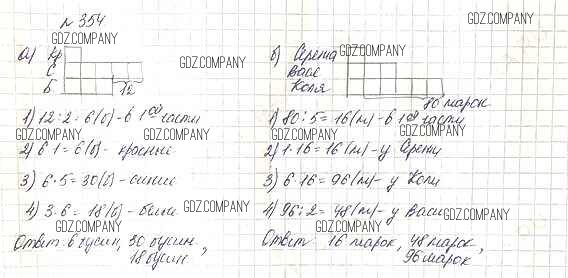 № 354
GDZ.COMPANY
GDZ.COMPANY
а) Кр
С
Б
12
GDZ.COMPANY
1) 12:2=6(б)-в 1ой части
GDZ.COMPANY GDZ.COMPANY
2) 6·1=6(б)- красные
3) 6·5=30(б)-синие
4) 3·6=18(б)-белые
GDZ.COMPANY
GDZ.COMPANY
Ответ: 6 бусин, 30 бусин,
18 бусин
GDZ.COMPANY
б) Сережа
Вася
Коля
80 марок
1) 80:5=16(м)-в 1ой части
GDZ.COMPANY GDZ.COMPANY
2) 1·16=16(м)-у Сережи
3) 6·16=96(м)-у Коли
4) 96:2=48(м)-у Васи
GDZ.COMPANY
GDZ.COMPANY
Ответ: 16 марок, 48 марок,
96 марок